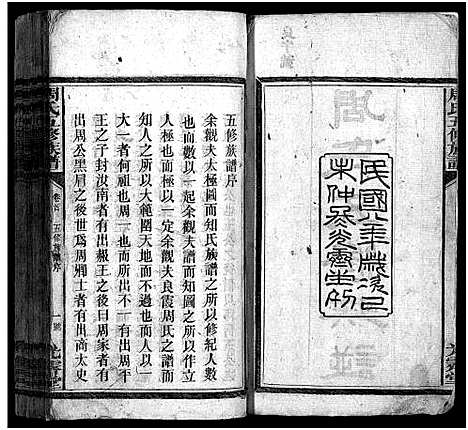 民國八年歲次己
未仲冬光霽堂刊
周氏五修族譜
光霽堂
五修族譜序
余觀夫太極圖而知氏族譜之所以修紀人數
也而數以一起余觀夫譜而知圖之所以建立
人極也而極以一定余觀夫良霞周氏之譜而
知人之所以大範圍天地而不過也而人以一
大一者何祖也周一也有出周平
王之子封汝南者有出赧王之後曰周家者有
出周公黑眉之後世爲周卿士者有出商太史
周氏五修族譜
卷首
五修譜序
一
光霽堂